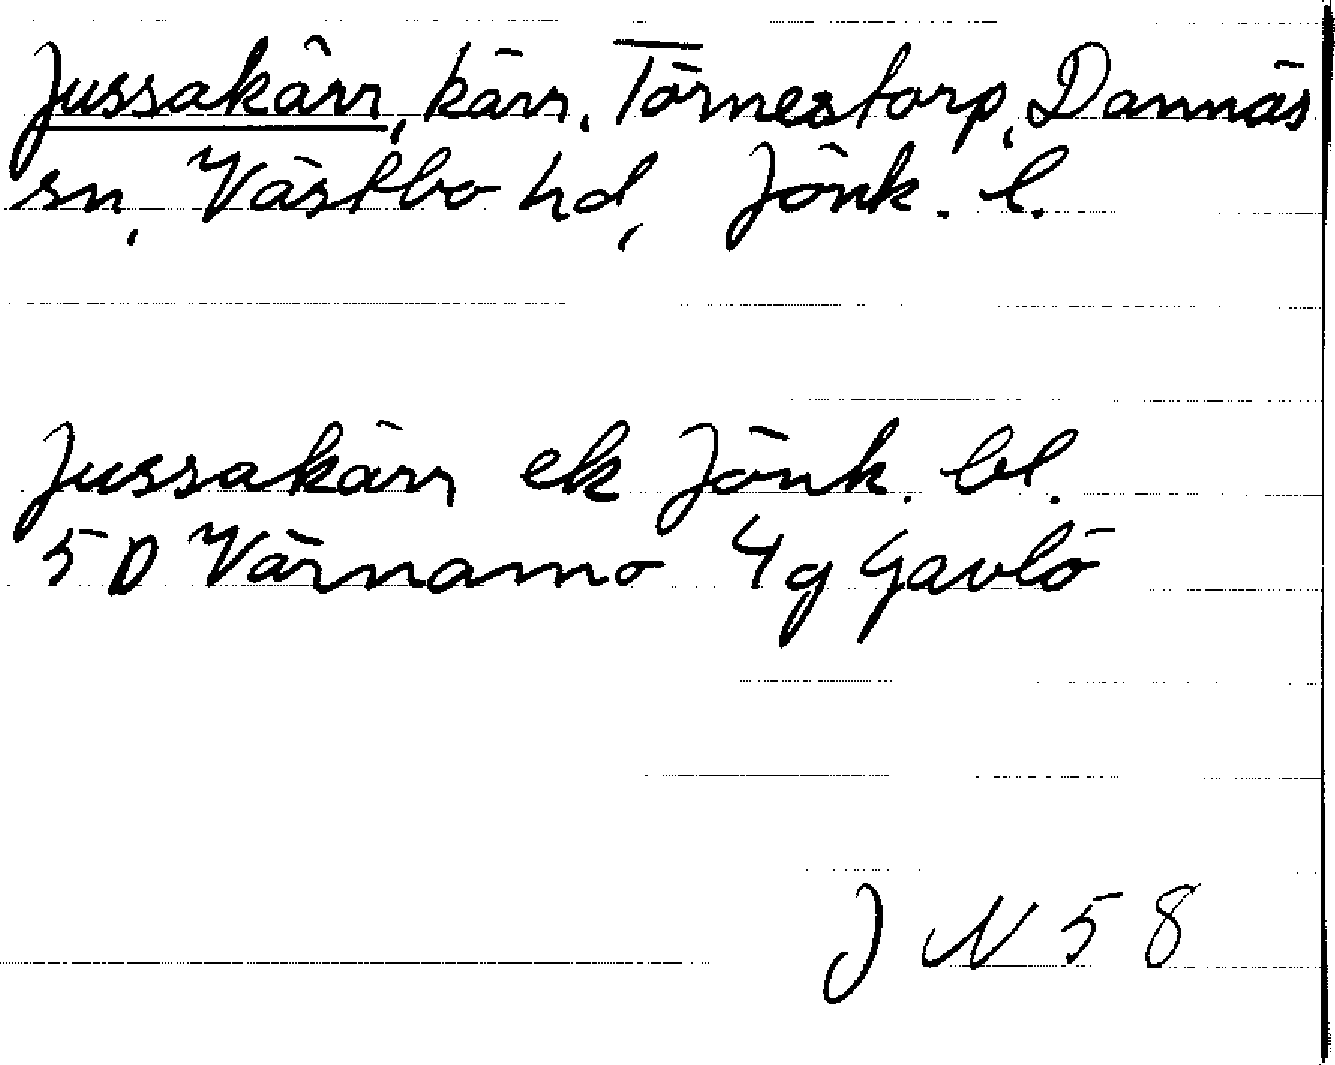 Jussakärr, kärr, Törnestorp, Dannäs
sn, Västbo hd, Jönk. l.
Jussakärr ek Jönk. bl.
5 D Värnamo 4g Gavlö
J N 5 8